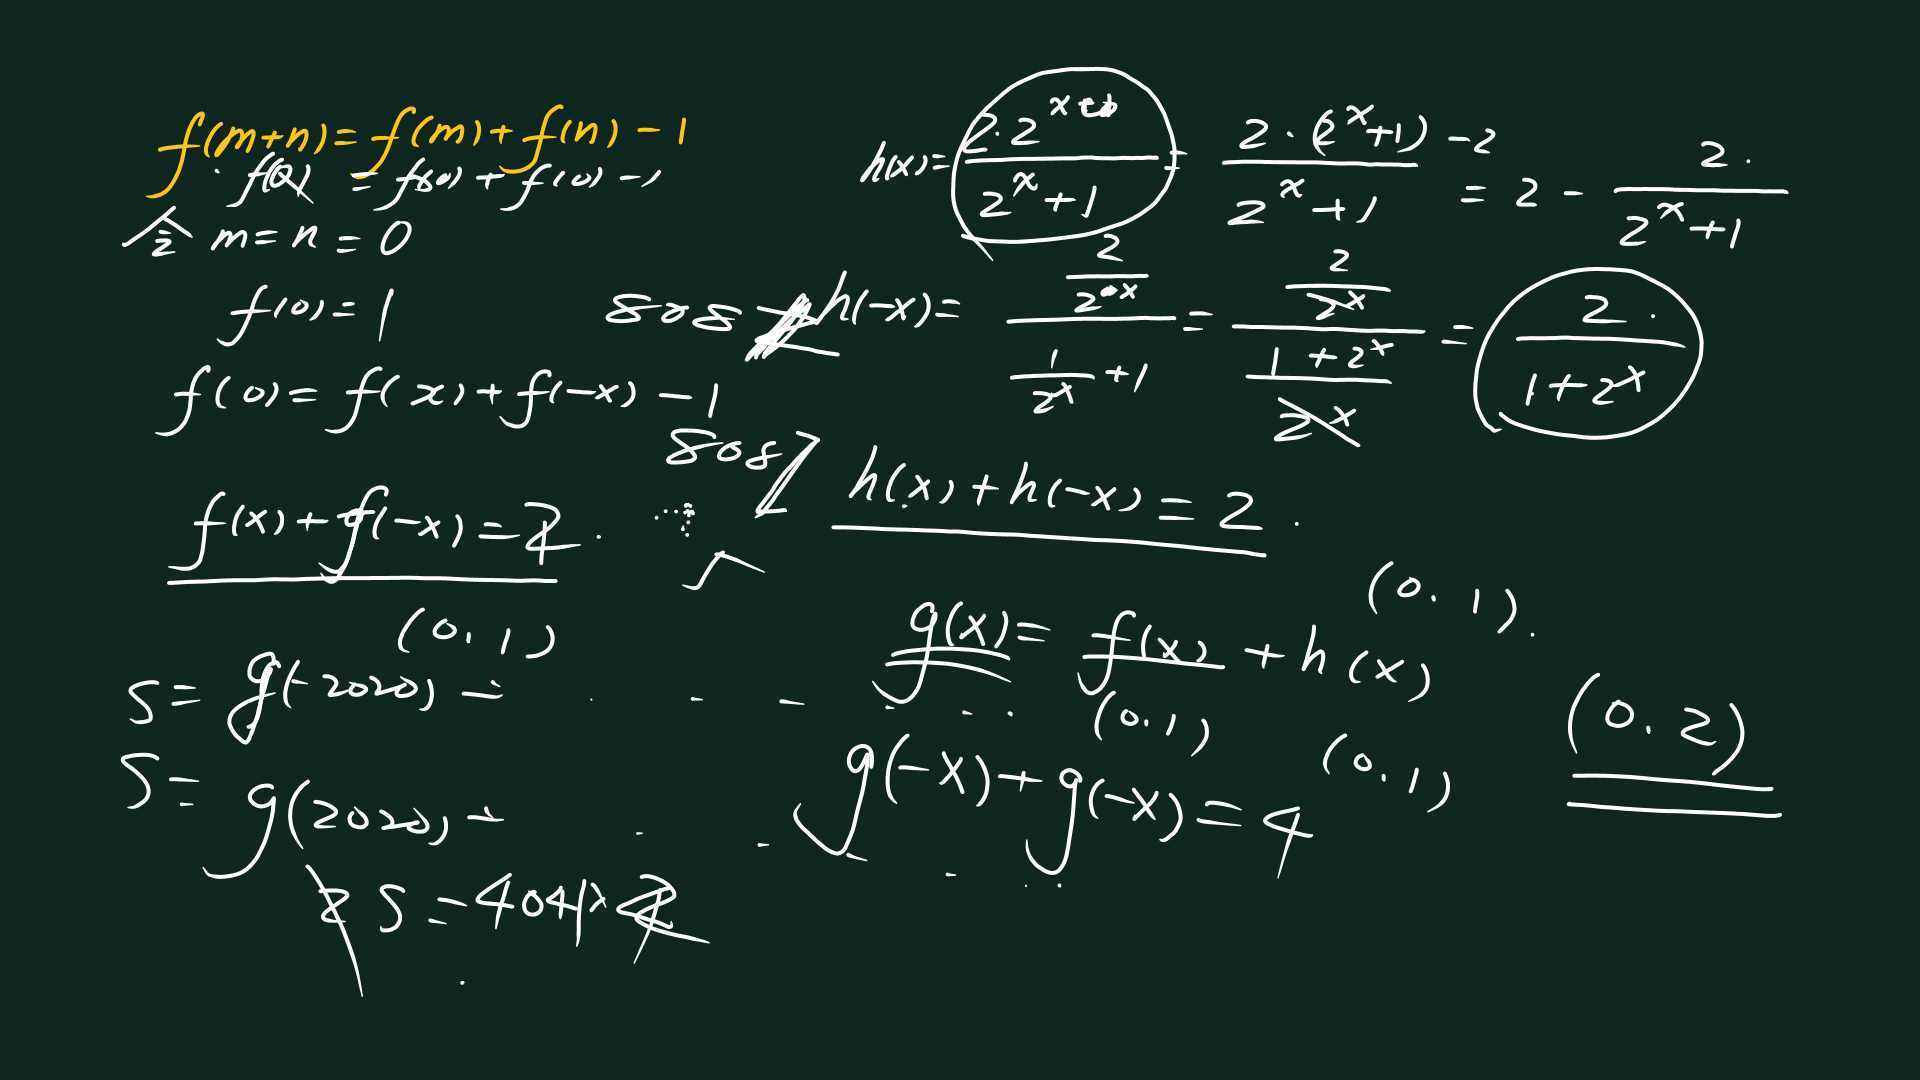 f(m+n)=f(m)+f(n)-1
f(0)=f(0)+f(0)-1
令 m=n=0
f(0)=1
f(0)=f(x)+f(-x)-1
f(x)+f(-x)=2.
(0.1)
S=g(-2020)+
S=g(2020)+
2S=4041×4
h(x)=2·2^x/(2^x+1)=(2·(2^x+1)-2)/(2^x+1)=2-2/(2^x+1)
808
h(-x)=(2/2^x)/(1/2^x+1)=(2/2^x)/((1+2^x)/2^x)=2/(1+2^x)
808
h(x)+h(-x)=2.
(0.1).
g(x)=f(x)+h(x)
(0.1) (0.1) (0.2)
g(-x)+g(-x)=4